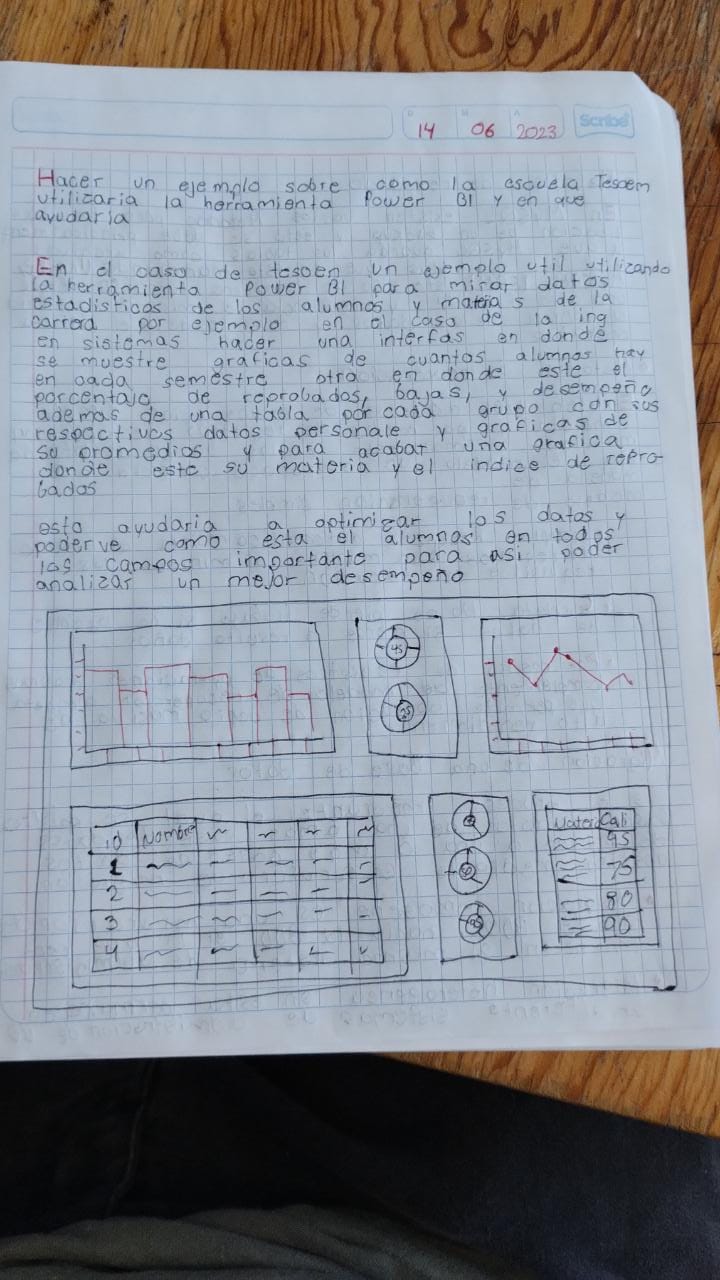 14 06 2023 Scribe
Hacer un ejemplo sobre como la escuela Tesoem
utilizaria la herramienta Power BI y en que
ayudaria
En el caso de tesoen un ejemplo util utilizando
la herramienta Power BI para mirar datos
estadisticos de los alumnos y materia s de la
carrera por ejemplo en el caso de la ing
en sistemas hacer una interfas en donde
se muestre graficas de cuantos alumnos hay
en cada semestre otra en donde este el
porcentaje de reprobados, bajas, y desempeño
ademas de una tabla por cada grupo con sus
respectivos datos personale y graficas de
su promedios y para acabar una grafica
donde este su materia y el indice de repro-
bados
esto ayudaria a optimizar los datos y
poderve como esta el alumnos en todos
los campos importante para asi poder
analizar un mejor desempeño
45
25
id Nombre
1
2
3
4
Materi Cali
95
75
80
90